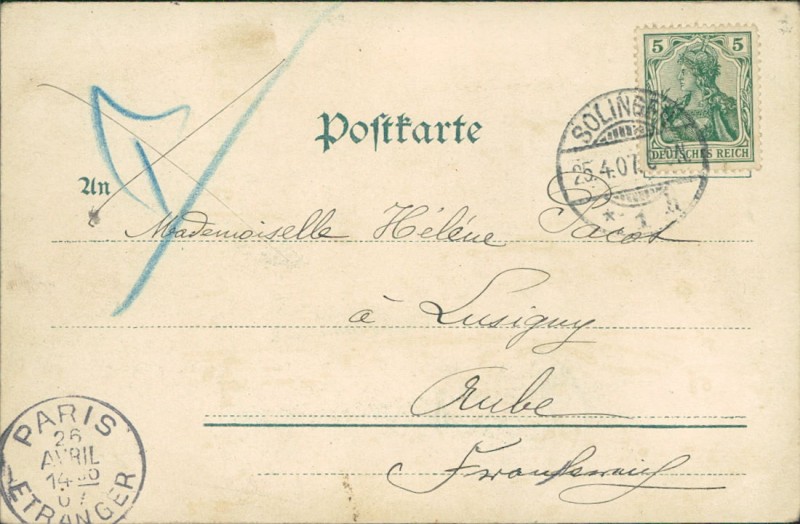 5 5
DEUTSCHES REICH
SOLINGEN
25.4.07.
* 1 
Postkarte
An
Mademoiselle Hélène Pacot
à Lusigny
Aube
Frankreich
PARIS
26
AVRIL
14 30
07
ETRANGER